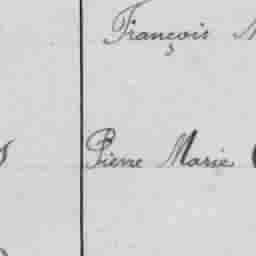 François
Pierre Marie